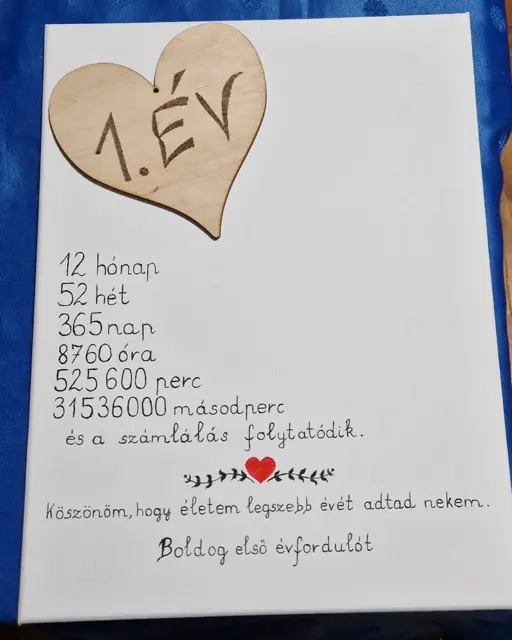 1. ÉV
12 hónap
52 hét
365 nap
8760 óra
525 600 perc
31536000 másodperc
és a számlálás folytatódik.
Köszönöm, hogy életem legszebb évét adtad nekem.
Boldog első évfordulót